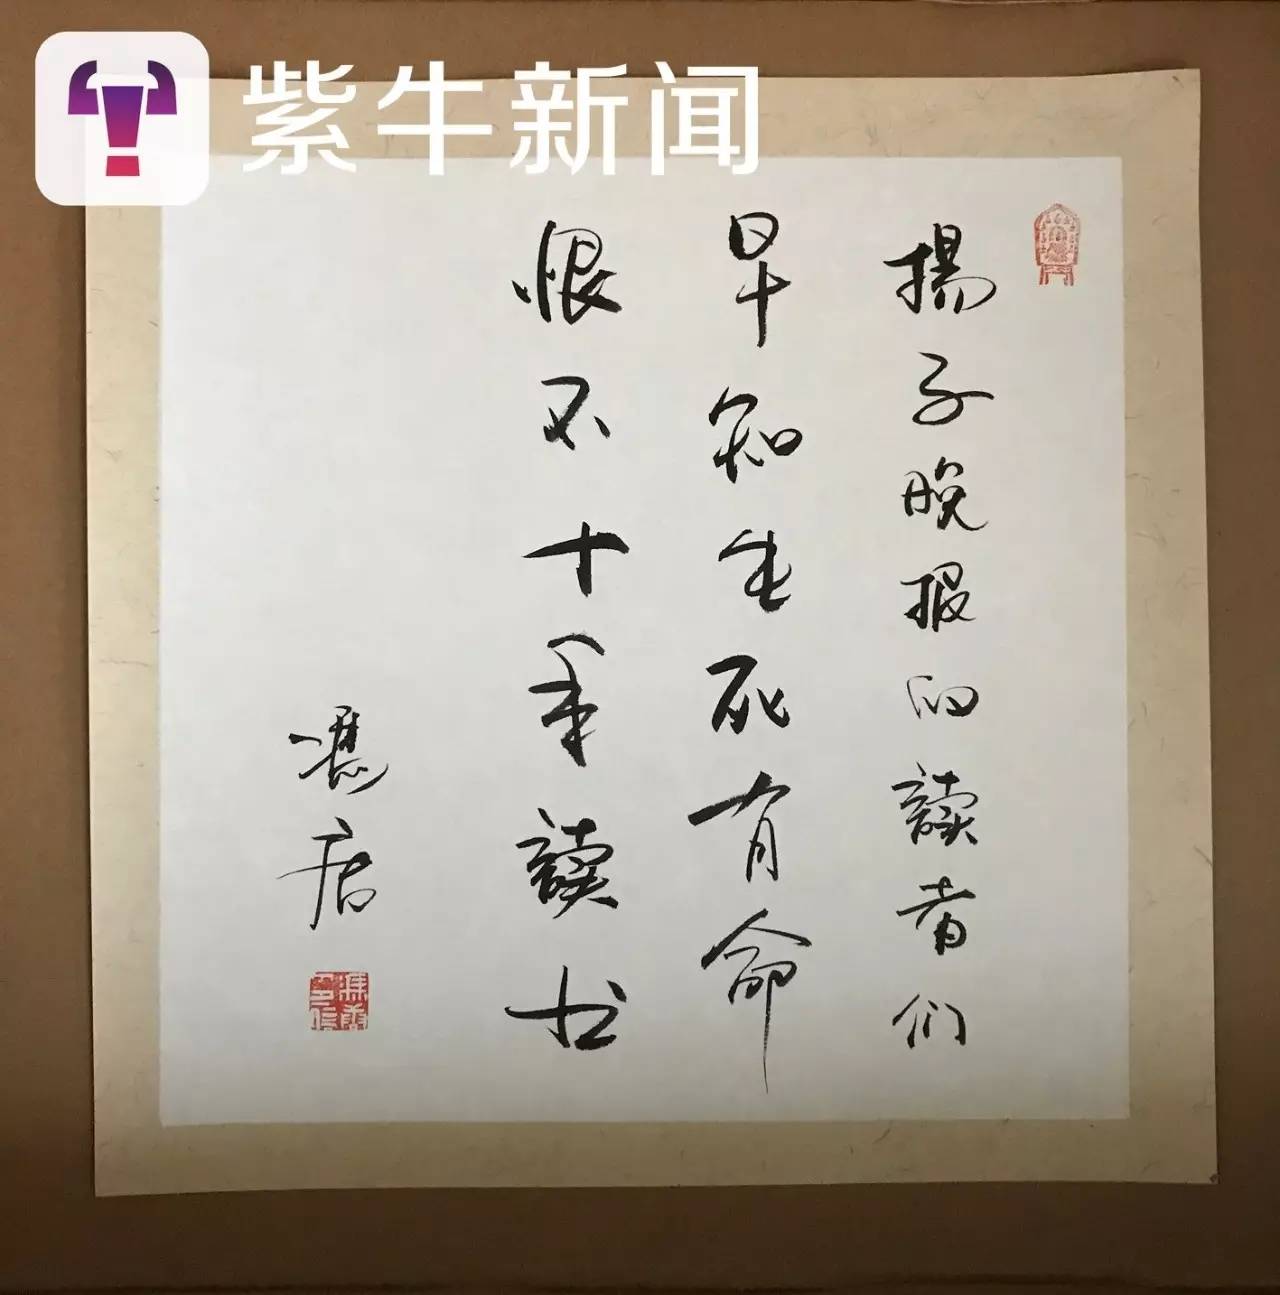 紫牛新闻
揚子晚报的讀者们
早知生死有命
恨不十年讀书
馮唐